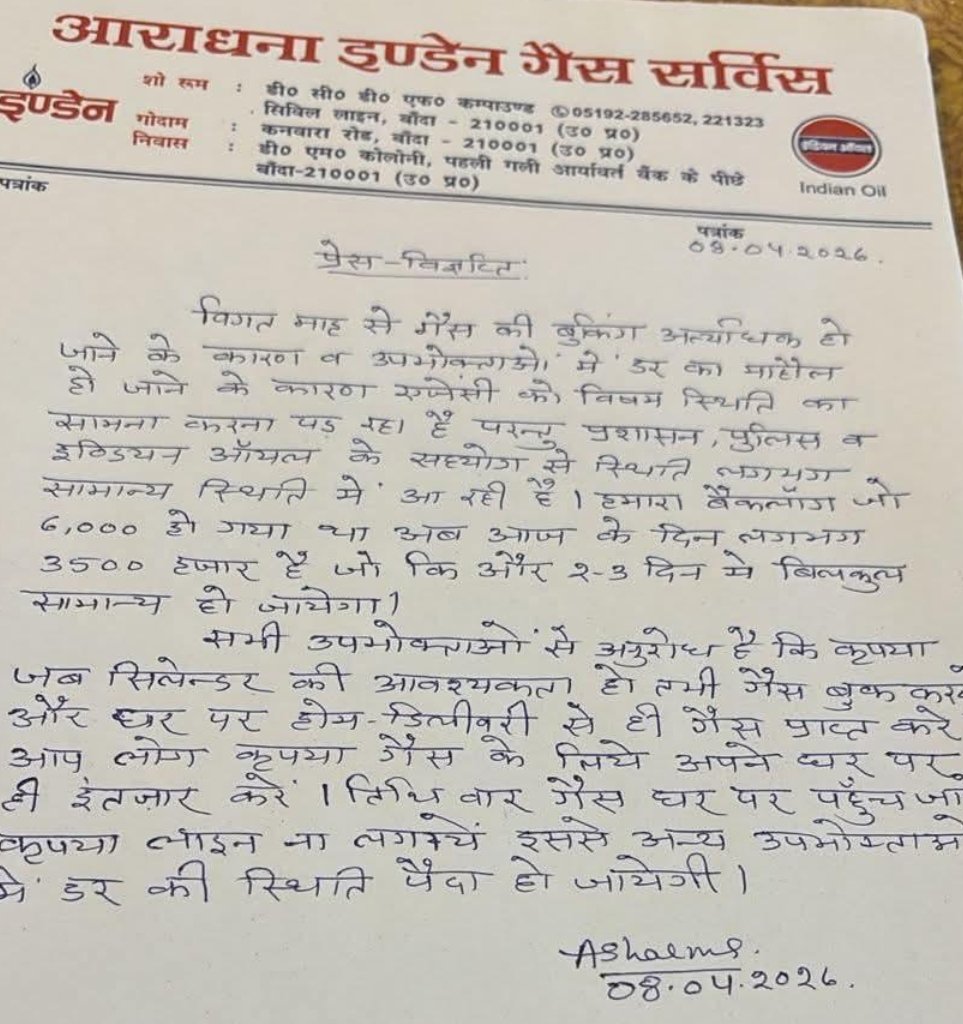 आराधना इण्डेन गैस सर्विस
इण्डेन
शो रूम : डी० सी० डी० एफ० कम्पाउण्ड ✆05192-285652, 221323
सिविल लाइन, बाँदा - 210001 (उ० प्र०)
गोदाम : कनवारा रोड, बाँदा - 210001 (उ० प्र०)
निवास : डी० एम० कोलोनी, पहली गली आर्यावर्त बैंक के पीछे
बाँदा-210001 (उ० प्र०)
इंडियन ऑयल
Indian Oil
पत्रांक
पत्रांक
08.04.2026.
प्रेस-विज्ञप्ति:
विगत माह से गैस की बुकिंग अत्यधिक हो
जाने के कारण व उपभोक्ताओं में डर का माहौल
हो जाने के कारण एजेंसी को विषम स्थिति का
सामना करना पड़ रहा है परन्तु प्रशासन, पुलिस व
इण्डियन ऑयल के सहयोग से स्थिति लगभग
सामान्य स्थिति में आ रही है। हमारा बैकलॉग जो
6,000 हो गया था अब आज के दिन लगभग
3500 हजार है जो कि और २-3 दिन मे बिलकुल
सामान्य हो जायेगा।
सभी उपभोक्ताओं से अनुरोध है कि कृपया
जब सिलेन्डर की आवश्यकता हो तभी गैस बुक करें
और घर पर होम-डिलीवरी से ही गैस प्राप्त करें
आप लोग कृपया गैस के लिये अपने घर पर
ही इंतजार करें। तिथि वार गैस घर पर पहुँच जा
कृपया लाइन ना लगायें इससे अन्य उपभोक्ताओ
में डर की स्थिति पैदा हो जायेगी।
08.04.2026.